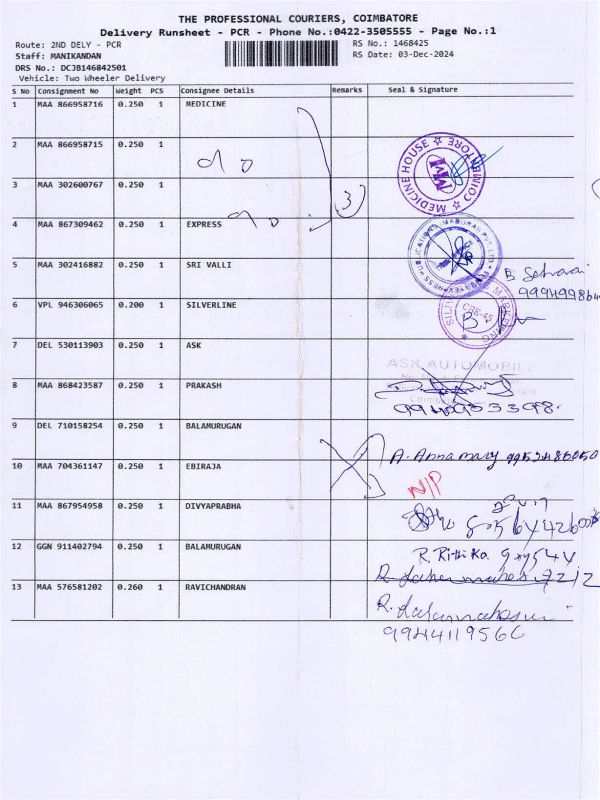 THE PROFESSIONAL COURIERS, COIMBATORE
Delivery Runsheet - PCR - Phone No.:0422-3505555 - Page No.:1
Route: 2ND DELY - PCR
RS No.: 1468425
Staff: MANIKANDAN
RS Date: 03-Dec-2024
DRS No.: DCJB146842501
Vehicle: Two Wheeler Delivery
S No Consignment No Weight PCS Consignee Details Remarks Seal & Signature
1 MAA 866958716 0.250 1 MEDICINE
2 MAA 866958715 0.250 1
do
MEDICINE HOUSE COIMBATORE
MW
3 MAA 302600767 0.250 1
3
do
4 MAA 867309462 0.250 1 EXPRESS
5 MAA 302416882 0.250 1 SRI VALLI
6 VPL 946306065 0.200 1 SILVERLINE
CBE-45
7 DEL 530113903 0.250 1 ASK
ASK AUTOMOBILE
8 MAA 868423587 0.250 1 PRAKASH
9 DEL 710158254 0.250 1 BALAMURUGAN
A. Annamary
10 MAA 704361147 0.250 1 EBIRAJA
N/P
11 MAA 867954958 0.250 1 DIVYAPRABHA
12 GGN 911402794 0.250 1 BALAMURUGAN
R. Rithika
13 MAA 576581202 0.260 1 RAVICHANDRAN
9944119566